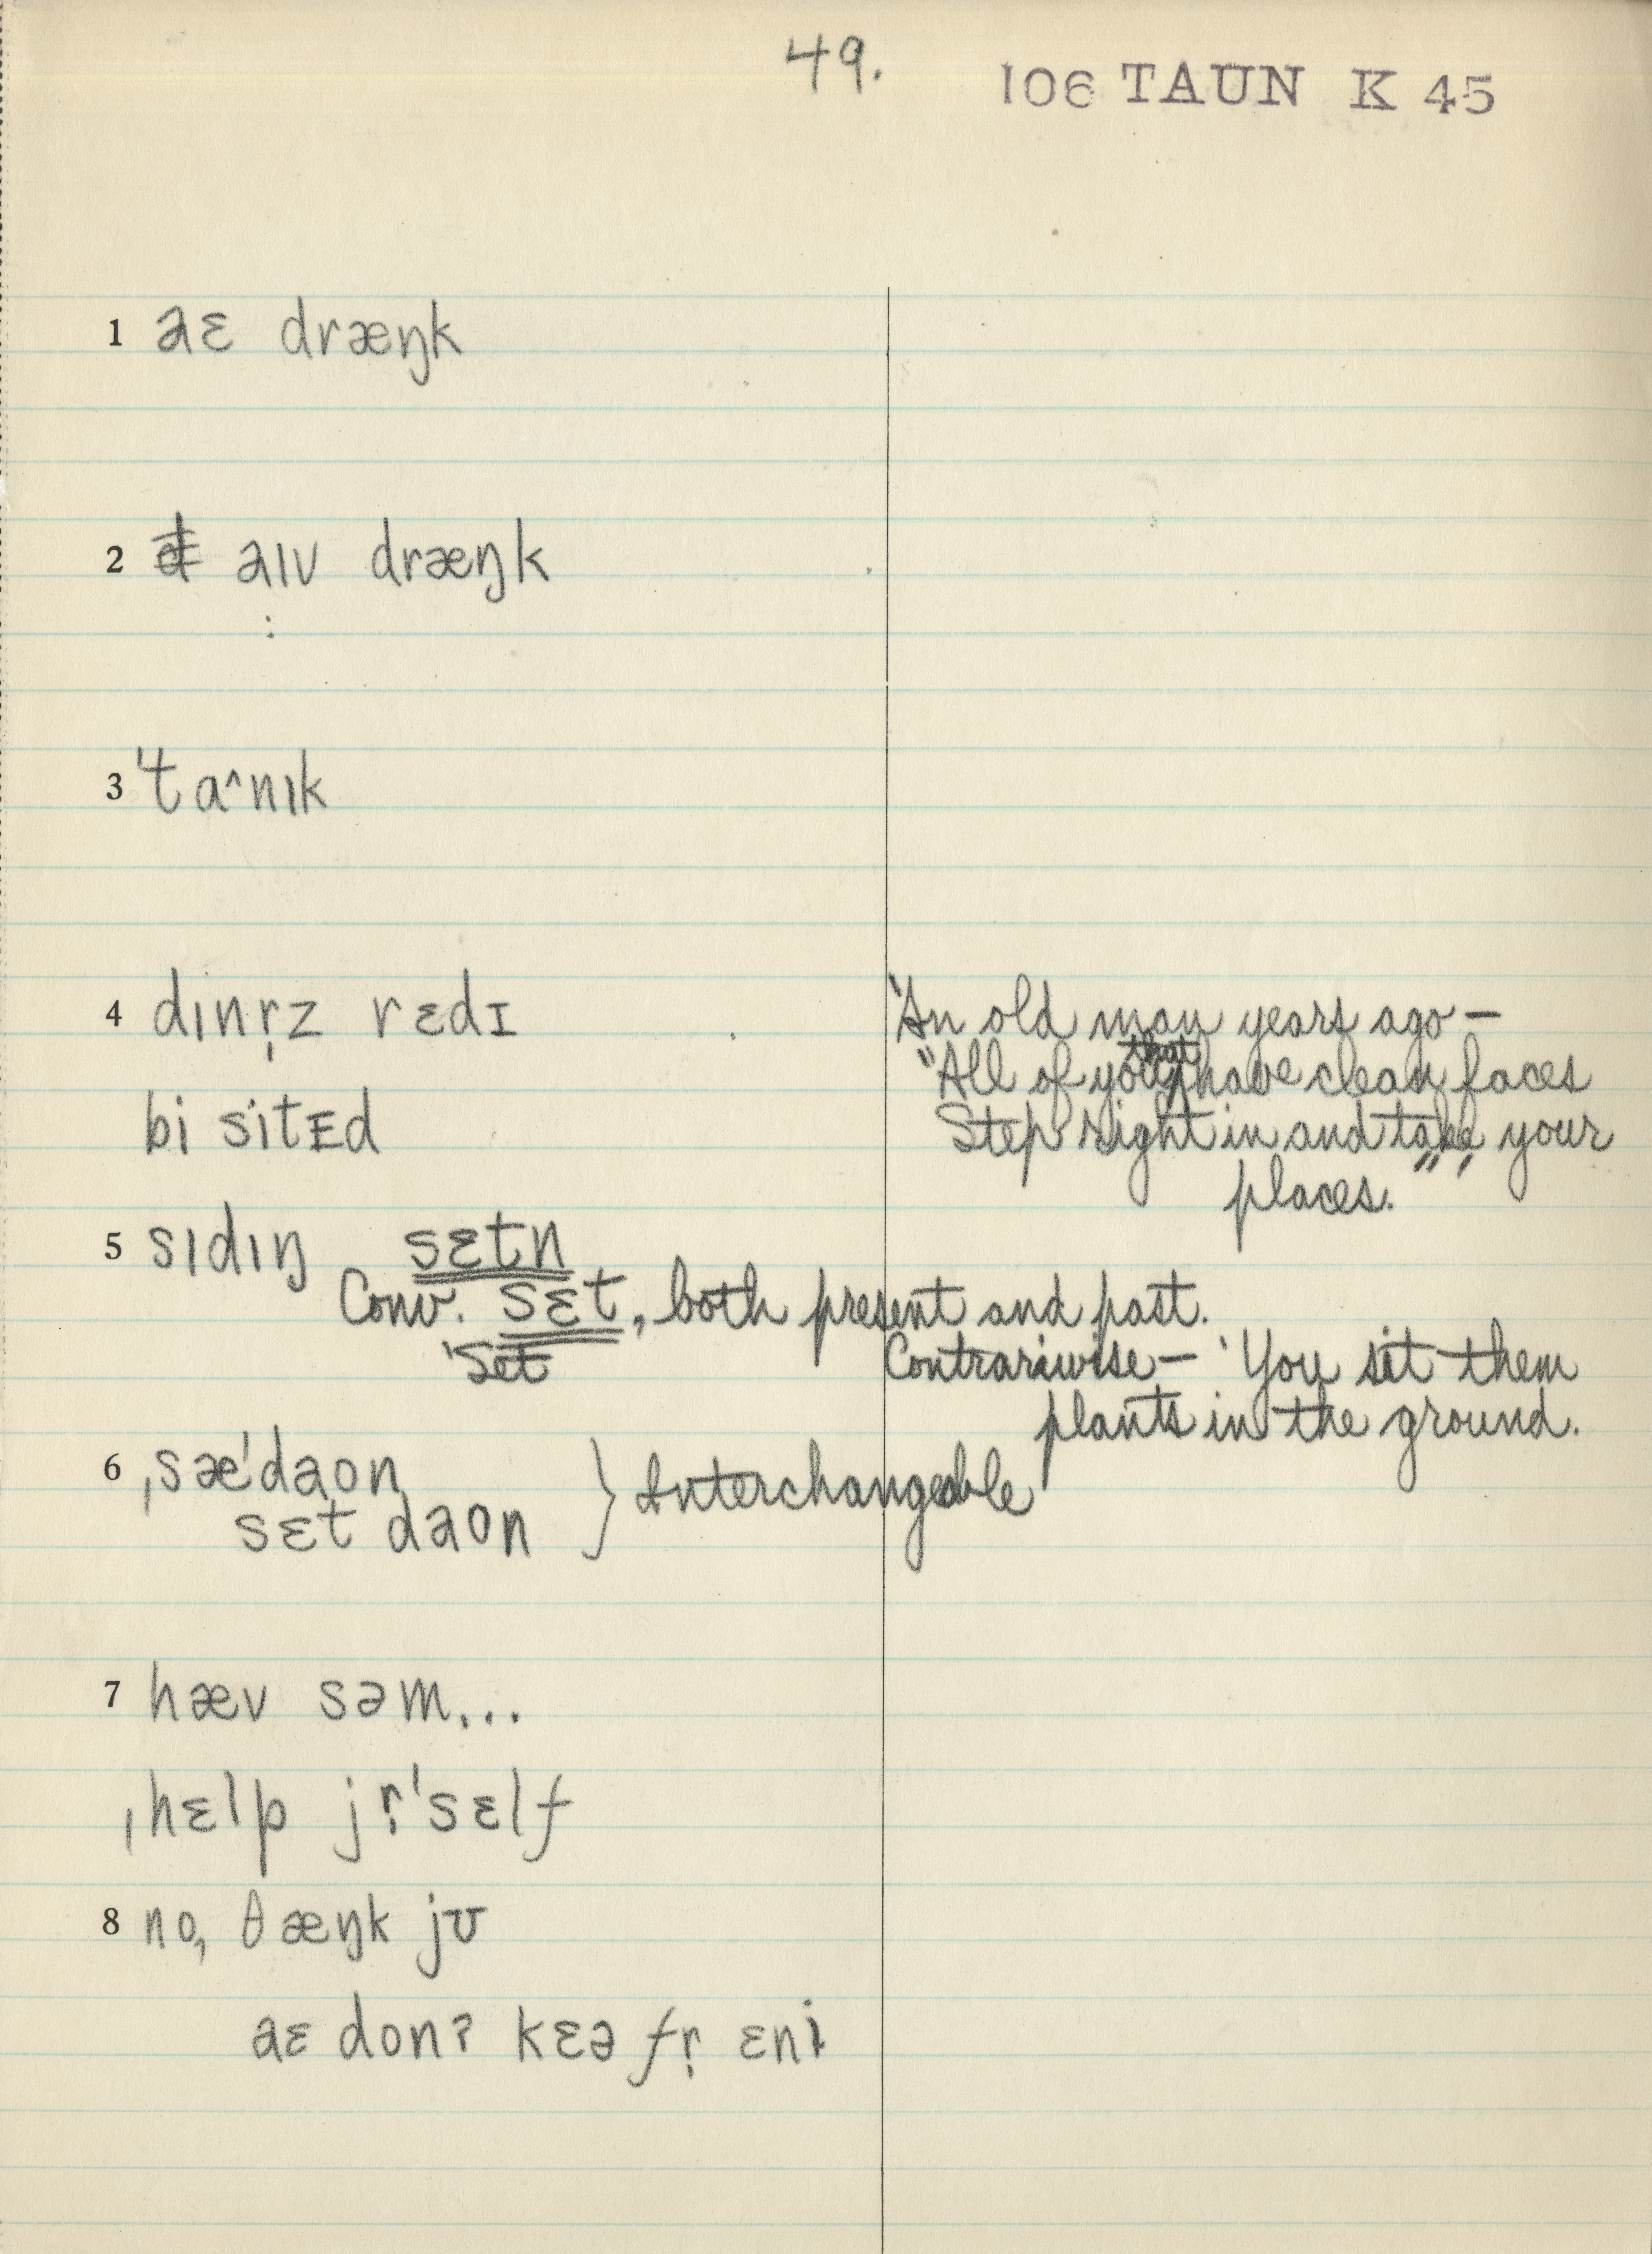 49.
106 TAUN K 45
1 aɛ dræŋk
2 aıv dræŋk
3 'ta^nık
4 dınr̩z rɛdɪ
bi sitɛd
'An old man years ago —
"All of you that have clean faces
Step right in and take your
places."'
5 sıdıŋ sɛtn
Conv. sɛt, both present and past.
'Set
Contrariwise — 'You sit them
plants in the ground.
6 ˌsæ'daon
sɛt daon } Interchangeable
7 hæv səm...
ˌhɛlp jr̩'sɛlf
8 no, θæŋk jʊ
aɛ donʔ kɛə fr̩ ɛni